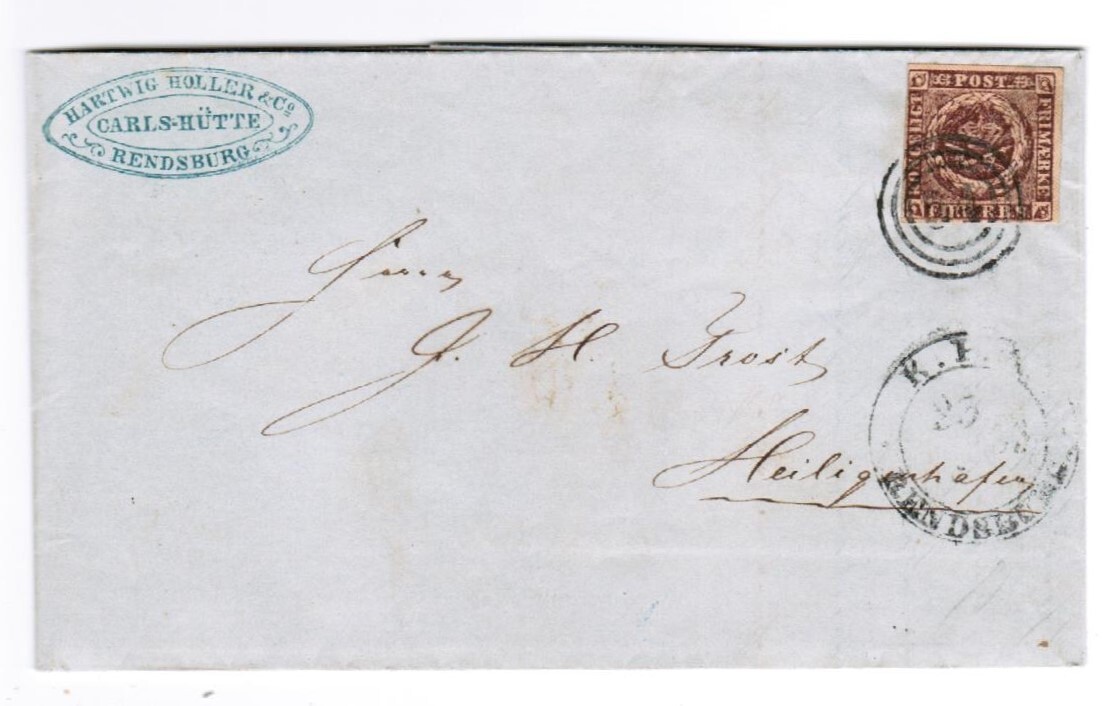 HARTWIG HOLLER & Cº
CARLS-HÜTTE
RENDSBURG
KONGELIGT
POST
FRIMÆRKE
FIRE R.B.S.
Herrn
J. H. Frost
Heiligenhafen
K.
23
RENDSBURG